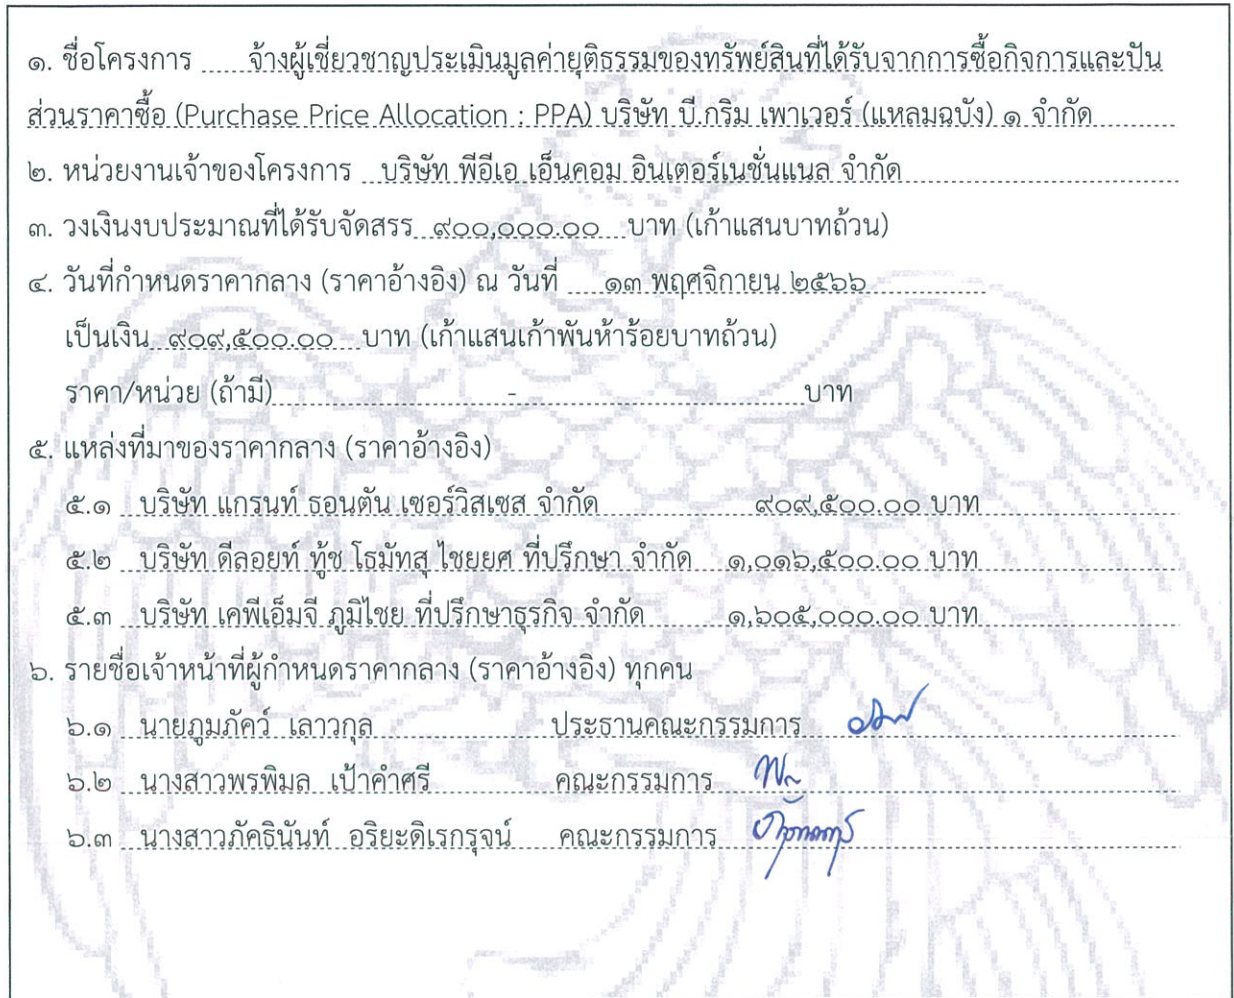 ๑. ชื่อโครงการ จ้างผู้เชี่ยวชาญประเมินมูลค่ายุติธรรมของทรัพย์สินที่ได้รับจากการซื้อกิจการและปัน
ส่วนราคาซื้อ (Purchase Price Allocation : PPA) บริษัท บี.กริม เพาเวอร์ (แหลมฉบัง) ๑ จำกัด
๒. หน่วยงานเจ้าของโครงการ บริษัท พีอีเอ เอ็นคอม อินเตอร์เนชั่นแนล จำกัด
๓. วงเงินงบประมาณที่ได้รับจัดสรร ๙๐๐,๐๐๐.๐๐ บาท (เก้าแสนบาทถ้วน)
๔. วันที่กำหนดราคากลาง (ราคาอ้างอิง) ณ วันที่ ๑๓ พฤศจิกายน ๒๕๖๖
เป็นเงิน ๙๐๙,๕๐๐.๐๐ บาท (เก้าแสนเก้าพันห้าร้อยบาทถ้วน)
ราคา/หน่วย (ถ้ามี) - บาท
๕. แหล่งที่มาของราคากลาง (ราคาอ้างอิง)
๕.๑ บริษัท แกรนท์ ธอนตัน เซอร์วิสเซส จำกัด ๙๐๙,๕๐๐.๐๐ บาท
๕.๒ บริษัท ดีลอยท์ ทู้ช โธมัทสุ ไชยยศ ที่ปรึกษา จำกัด ๑,๐๑๖,๕๐๐.๐๐ บาท
๕.๓ บริษัท เคพีเอ็มจี ภูมิไชย ที่ปรึกษาธุรกิจ จำกัด ๑,๖๐๕,๐๐๐.๐๐ บาท
๖. รายชื่อเจ้าหน้าที่ผู้กำหนดราคากลาง (ราคาอ้างอิง) ทุกคน
๖.๑ นายภูมภัคว์ เลาวกุล ประธานคณะกรรมการ
๖.๒ นางสาวพรพิมล เป้าคำศรี คณะกรรมการ
๖.๓ นางสาวภัคธินันท์ อริยะดิเรกรุจน์ คณะกรรมการ